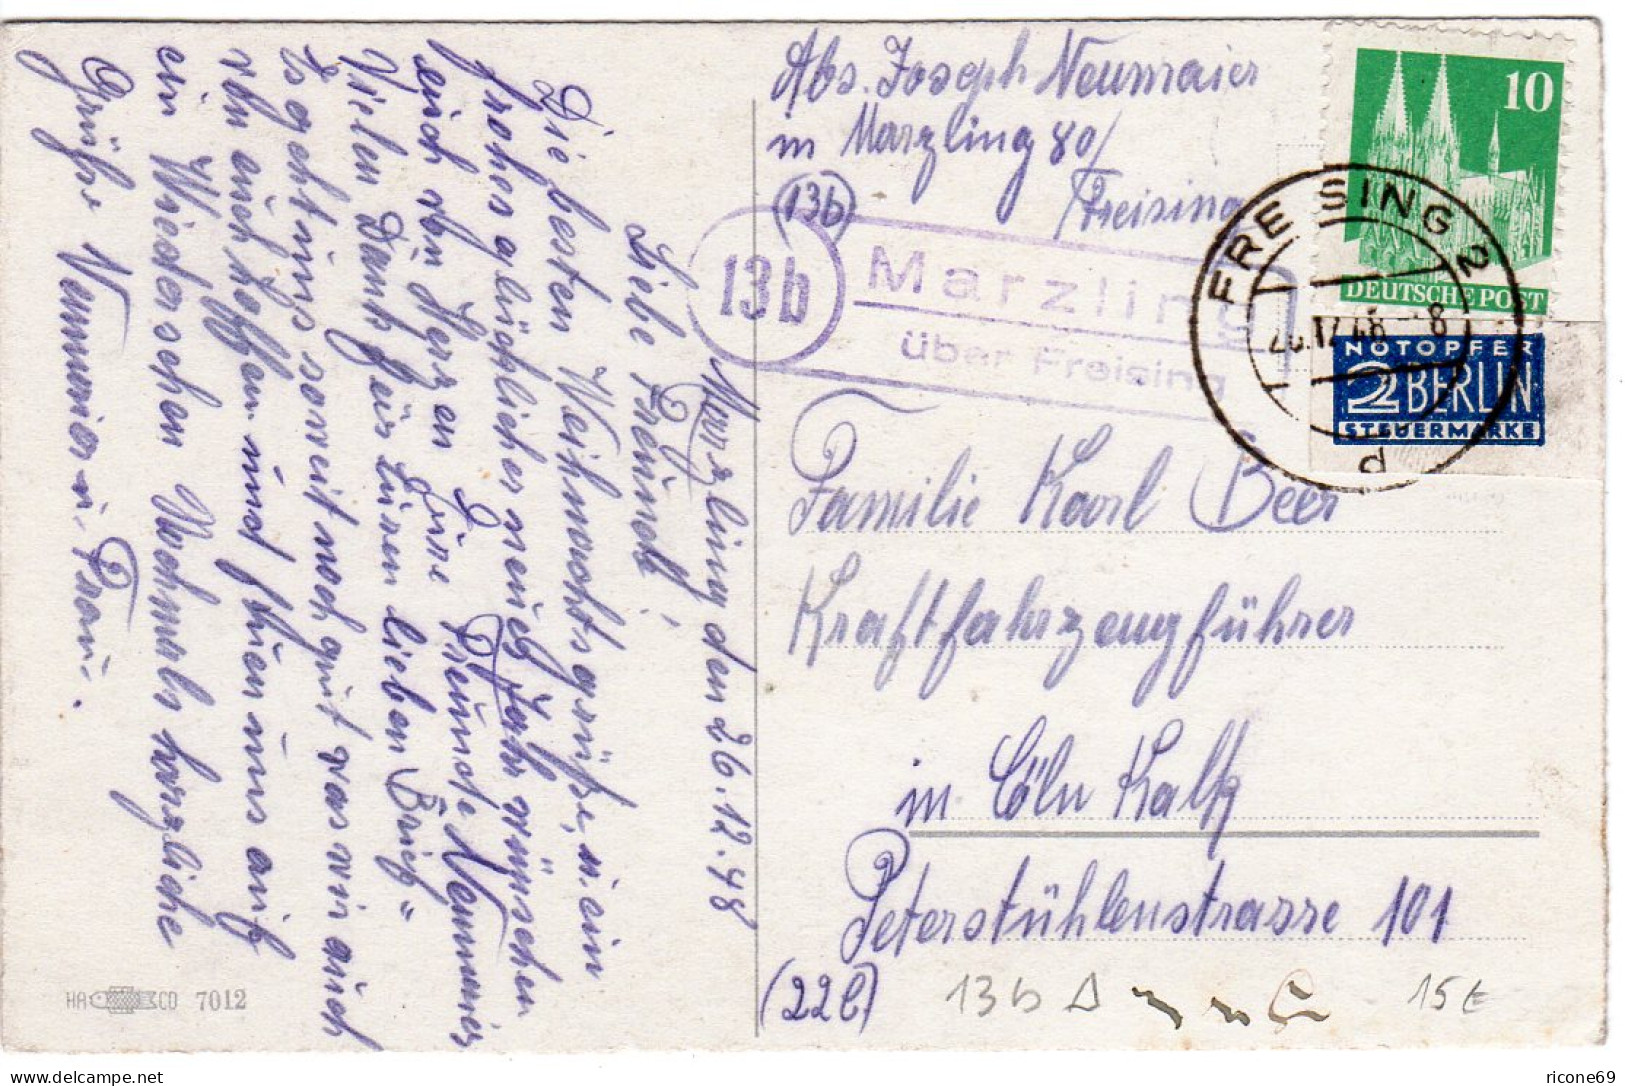 Abs. Joseph Neumaier
in Marzling 80/
Freising
(13b)
13b
Marzling
über Freising
10
DEUTSCHE POST
NOTOPFER
2 BERLIN
STEUERMARKE
FREISING 2
.12.48 -8
d
Familie Karl Beer
Kraftfahrzeugführer
in Cöln Kalk
Peterstühlenstrasse 101
(22c)
13b
15€
Marzling den 26.12.48
Liebe Freunde!
Die besten Weihnachtsgrüße, u. ein
frohes glückliches neues Jahr wünschen
euch von Herzen Eure Freunde Neumaier
Vielen Dank für Euren lieben Brief"
Es geht uns soweit noch gut was wir auch
von euch hoffen und freuen uns auf
ein Wiedersehen Nochmals herzliche
Grüße Neumaier u. Frau.
HACO 7012
delcampe.net
ricone69